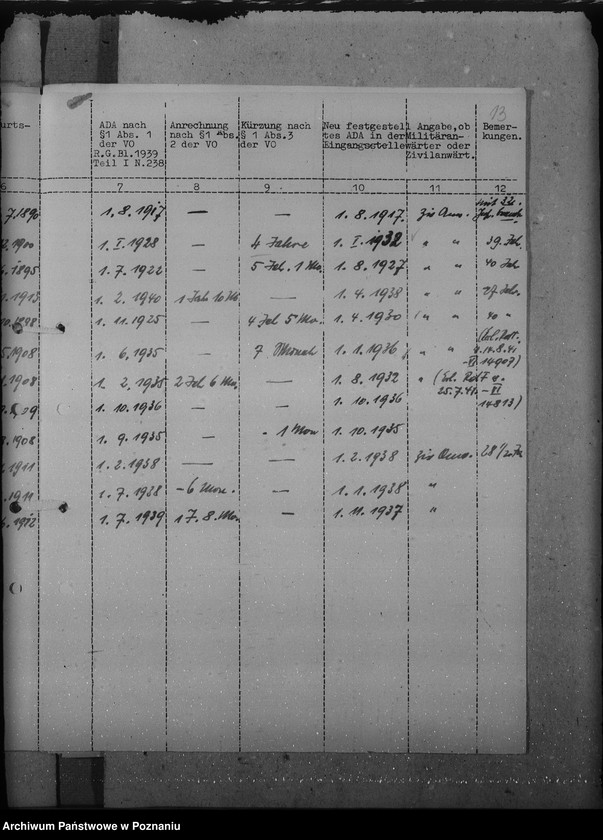 13
urts-
ADA nach
§1 Abs. 1
der VO
R.G.Bl.1939
Teil I N.238
Anrechnung
nach §1 Abs.
2 der VO
Kürzung nach
§ 1 Abs.3
der VO
Neu festgestell
tes ADA in der
Eingangsstelle
Angabe,ob
Militäran-
wärter oder
Zivilanwärt.
Bemer-
kungen.
6 7 8 9 10 11 12
.7.1890 1.8.1917 — — 1.8.1917.
.1900 1.I.1928 — 4 Jahre 1.I.1932 " " 39
.1895 1.7.1922 — 5 1 Mo. 1.8.1927 " " 40
.1913 1.2.1940 1 Jahr 10 — 1.4.1938 " " 27
.1898 1.11.1925 — 4 5 Mo. 1.4.1930 " " 40 "
.1908 1.6.1935 — 7 Monate 1.1.1936 " "
14.8.41
14907)
.1908 1.2.1935 2 6 Mo. — 1.8.1932 "
25.7.41.
1.10.1936 — 1.10.1936 14813)
.1908 1.9.1935 — 1 Mon 1.10.1935
.1911 1.2.1938 — — 1.2.1938 28
.1911 1.7.1938 - 6 Mon. — 1.1.1938 "
.1912 1.7.1939 1 J. 8. Mo. — 1.11.1937 "
Archiwum Państwowe w Poznaniu